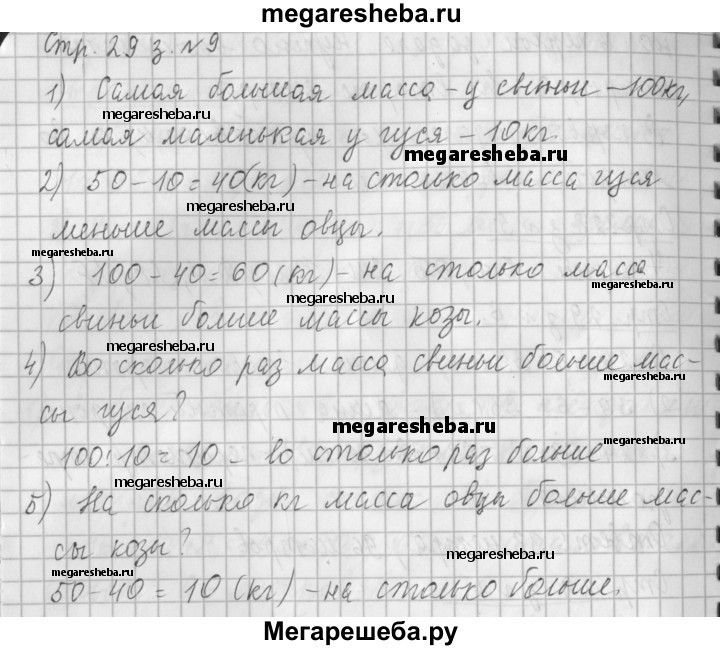 megaresheba.ru
Стр. 29 з. №9
1) Самая большая масса - у свиньи - 100кг,
megaresheba.ru
самая маленькая у гуся - 10кг.
megaresheba.ru
2) 50-10=40(кг) - на столько масса гуся
megaresheba.ru
меньше массы овцы.
megaresheba.ru
3) 100-40=60(кг) - на столько масса
megaresheba.ru
megaresheba.ru
свиньи больше массы козы.
megaresheba.ru
4) Во сколько раз масса свиньи больше мас-
megaresheba.ru
сы гуся?
megaresheba.ru
100:10=10 - во столько раз больше
megaresheba.ru
megaresheba.ru
5) На сколько кг масса овцы больше мас-
megaresheba.ru
сы козы?
megaresheba.ru
megaresheba.ru
50-40=10(кг) - на столько больше.
Мегарешеба.ру